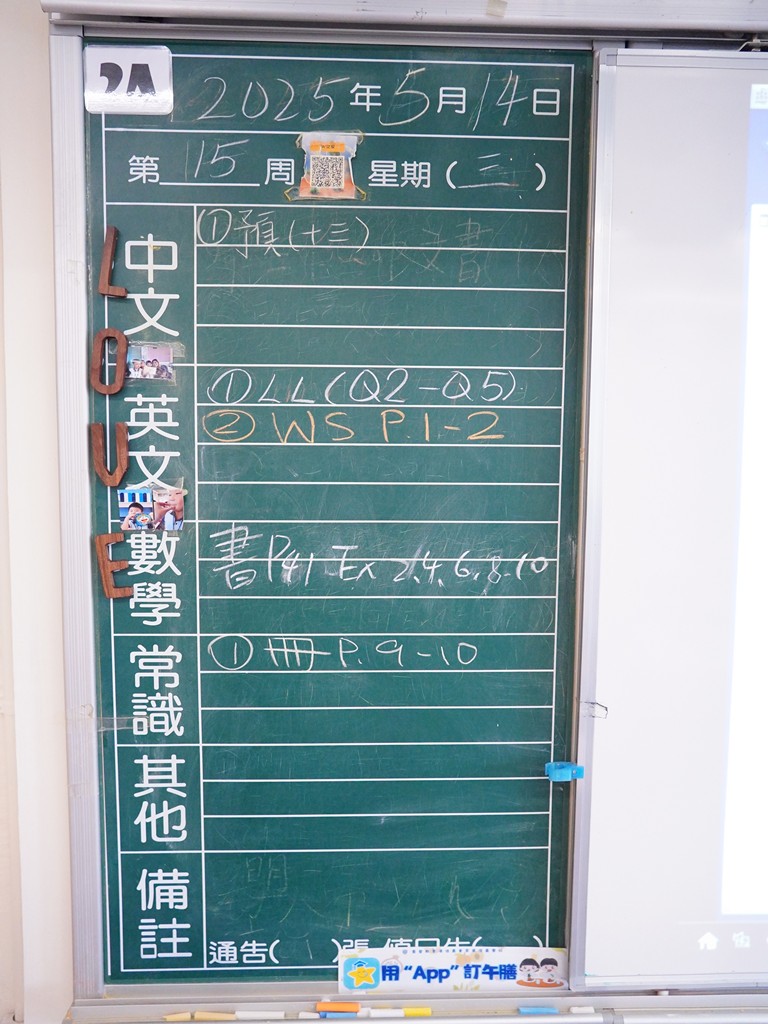 2A
2025年5月14日
第15周 星期(三)
LOVE
中文
①預(十三)
英文
①LL(Q2-Q5)
②WS P.1-2
數學
書P41 Ex 2,4,6,8,10
常識
①冊P.9-10
其他
備註
通告( )張
用“App”訂午膳